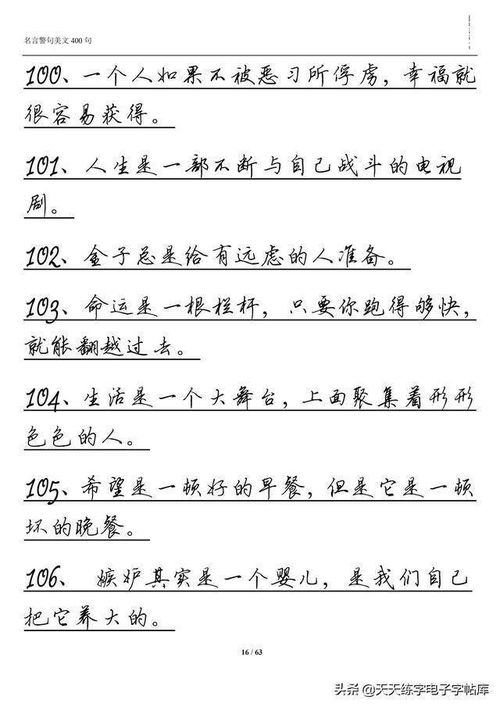 名言警句美文 400 句
100、一个人如果不被恶习所俘虏，幸福就
很容易获得。
101、人生是一部不断与自己战斗的电视
剧。
102、金子总是给有远虑的人准备。
103、命运是一根栏杆，只要你跑得够快，
就能翻越过去。
104、生活是一个大舞台，上面聚集着形形
色色的人。
105、希望是一顿好的早餐，但是它是一顿
坏的晚餐。
106、 嫉妒其实是一个婴儿，是我们自己
把它养大的。
16 / 63
头条 @天天练字电子字帖库